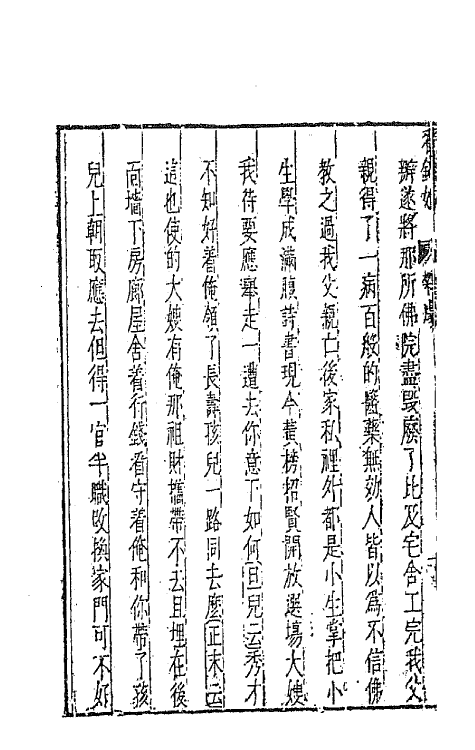 看錢奴
辦遂將那所佛院盡毀廢了比及宅舍工完我父
親得了一病百般的醫藥無効人皆以為不信佛
教之過我父親亡後家私裡外都是小生掌把小
生學成滿腹詩書現今黄榜招賢開放選塲大嫂
我待要應舉走一遭去你意下如何旦兒云秀才
不知好着俺領了長壽孩兒一路同去麽正末云
這也使的大嫂有俺那祖財攜帶不去且埋在後
面墻下房廊屋舍着行錢看守着俺和你帶了孩
兒上朝取應去但得一官半職改換家門可不好